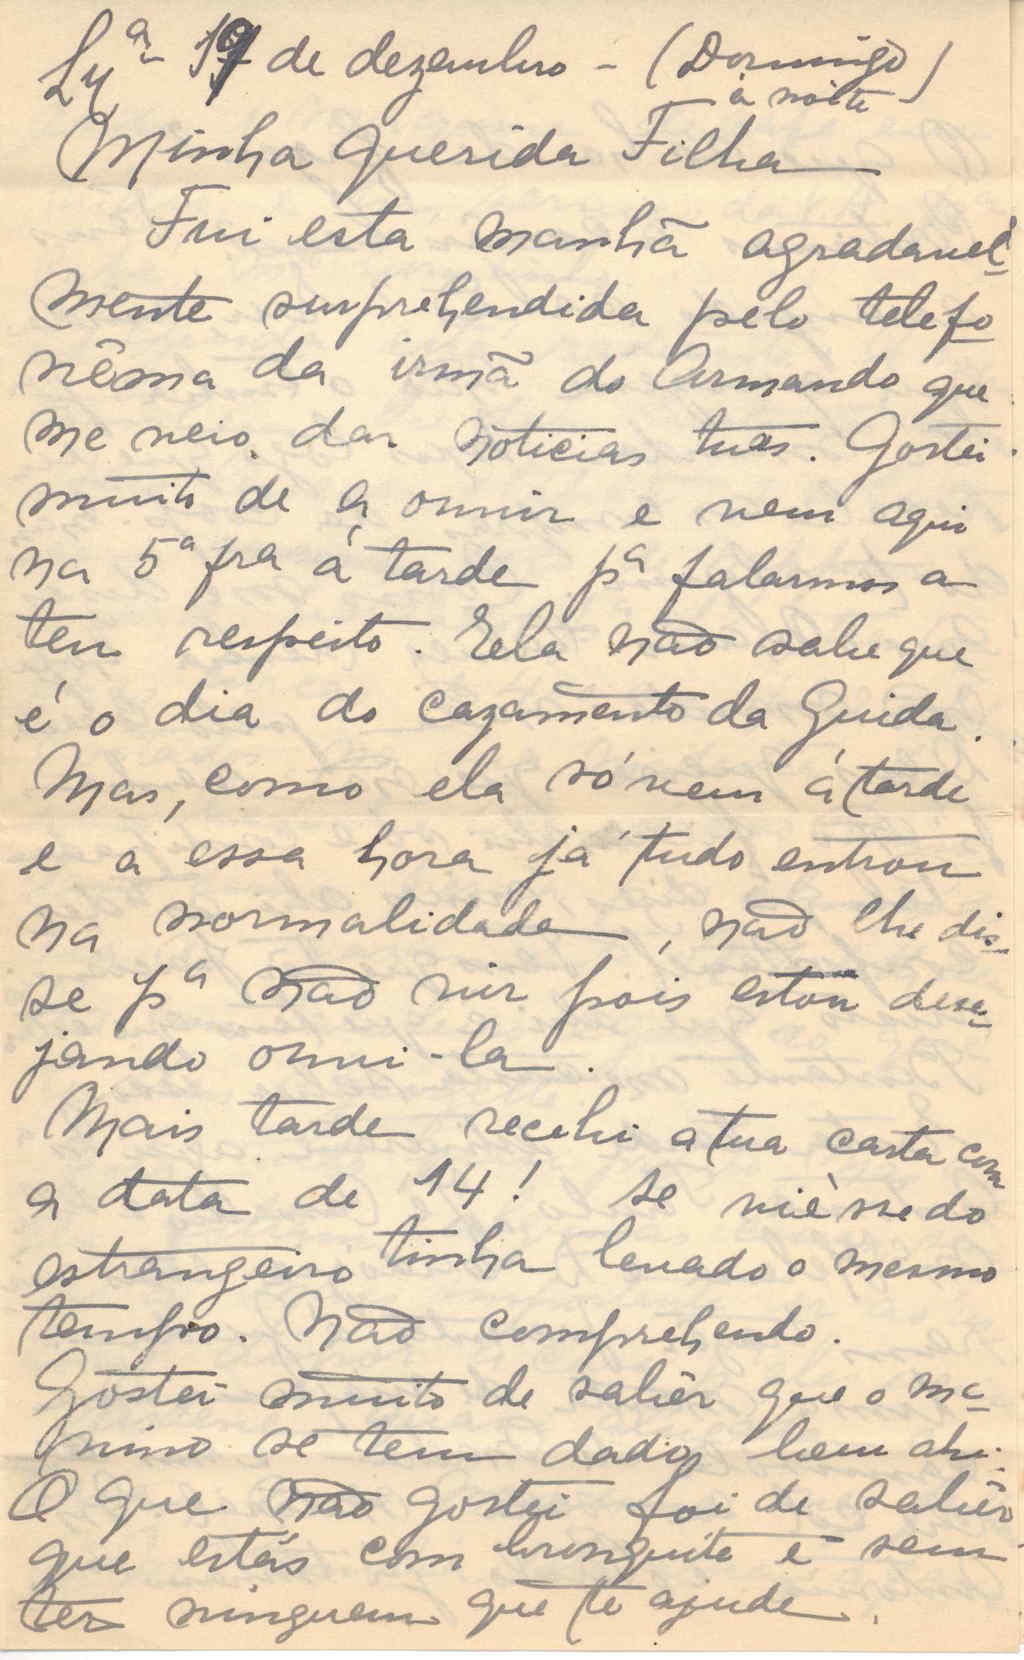 Lxª 19 de dezembro - (Domingo)
à noite
Minha querida Filha
Fui esta manhã agradavel-
mente surprehendida pelo telefo-
nêma da irmã do Armando que
me veio dar noticias tuas. Gostei
muito de a ouvir e vem aqui
na 5ª fra á tarde pª falarmos a
teu respeito. Ela não sabe que
é o dia do cazamento da Guida.
Mas, como ela só vem á tarde
e a essa hora já tudo entrou
na normalidade, não lhe dis-
se pª não vir pois estou dese-
jando ouvi-la.
Mais tarde recebi a tua carta com
a data de 14! Se viésse do
estrangeiro tinha levado o mesmo
tempo. Não comprehendo.
Gostei muito de sabêr que o me-
nino se tem dado bem ahi.
O que não gostei foi de sabêr
que estás com bronquite e sem
ter ninguem que te ajude.